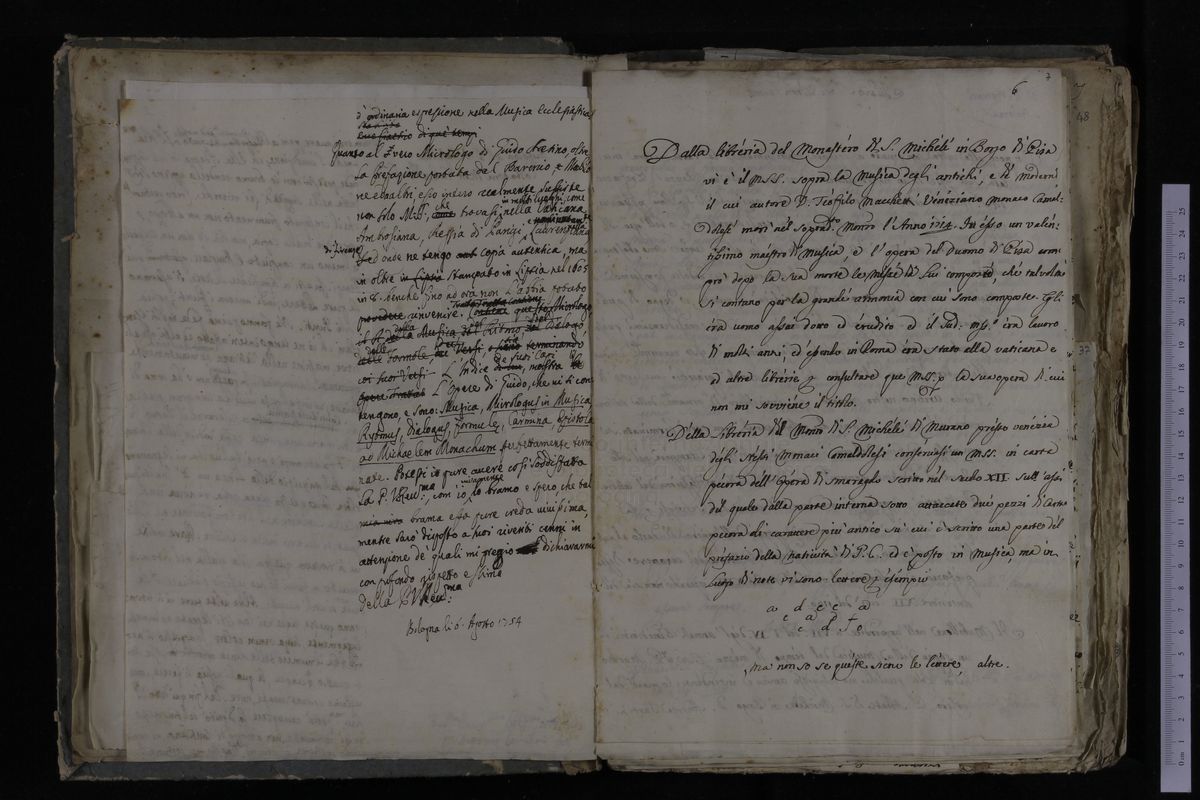 è ordinaria espressione nella Musica Ecclesiastica
di que tempi
Quanto al vero Micrologo di Guido Aretino, oltre
la prefazione portata dal Baronio e
ne ed altri, esso intero realmente sussiste
in molti luoghi, come
non solo MS. che trovasi nella Vaticana
Ambrosiana, Chiesa di Parigi, Laurenziana
di Firenze
ed onde ne tengo copia autentica, ma
in oltre stampato in Lipsia nel 1605
in 8. benche fino ad ora non l'abbia potuto
rinvenire. Contiene questo Micrologo
della Musica del Ritmo Dialogo
delle formole, Versi,
coi suoi Versi L'Indice de suoi Capi mostra
L'Opere di Guido, che vi si con
tengono, e sono: Musica, Micrologus in Musica
Rytmus, Dialogus, formulę, Carmina, Epistola
ad Michaelem Monachum perfettamente termi
nate. Potessi io pure avere così soddisfatta
la P. V. Reu:ma, com'io sinceramente lo bramo e spero, che tal
brama essa pure creda vivissima,
mente sarò disposto a suoi riveriti cenni in
attenzione de quali mi pregio dichiararmi
con profondo rispetto e stima
della P. V. Reu:ma
Bologna li 6. Agosto 1754
7
6
48
Dalla libreria del Monastero di S. Michele in Borgo di Pisa
vi è il MSS. sopra la Musica degli antichi, e de moderni
il cui autore D. Teofilo Macchetti Veneziano monaco Camal-
dolese morì nel sopradto Monro l'Anno 1714. Fu esso un valen-
tissimo maestro di Musica, e l'opera del Duomo di Pisa com-
prò dopo la sua morte le Messe da Lui composte che tal volta
si cantano per la grande armonia con cui sono composte. Egli
era uomo assai dotto ed erudito ed il sud. mss.º era lavoro
di molti anni, ed essendo in Roma era stato alla vaticana e
ad altre librerie p consultare que MSS. p la sua opera di cui
non mi sovviene il titolo.
37
Della Libreria del Monro di S. Michele di Murano presso venezia
degli stessi Monaci Camaldolesi conservasi un MSS. in carta
pecora dell'Opera di Smaragdo scritto nel secolo XII sull'asse
del quale dalla parte interna sono attaccate due pezzi di carta
pecora di carattere piu antico su cui è scritto una parte del
prefazio della natività di P. C. ed è posto in Musica, ma in
luogo di note vi sono lettere p esempio
a d e c a
c a P f
c d o
Ma non so se queste sieno le lettere, altre.